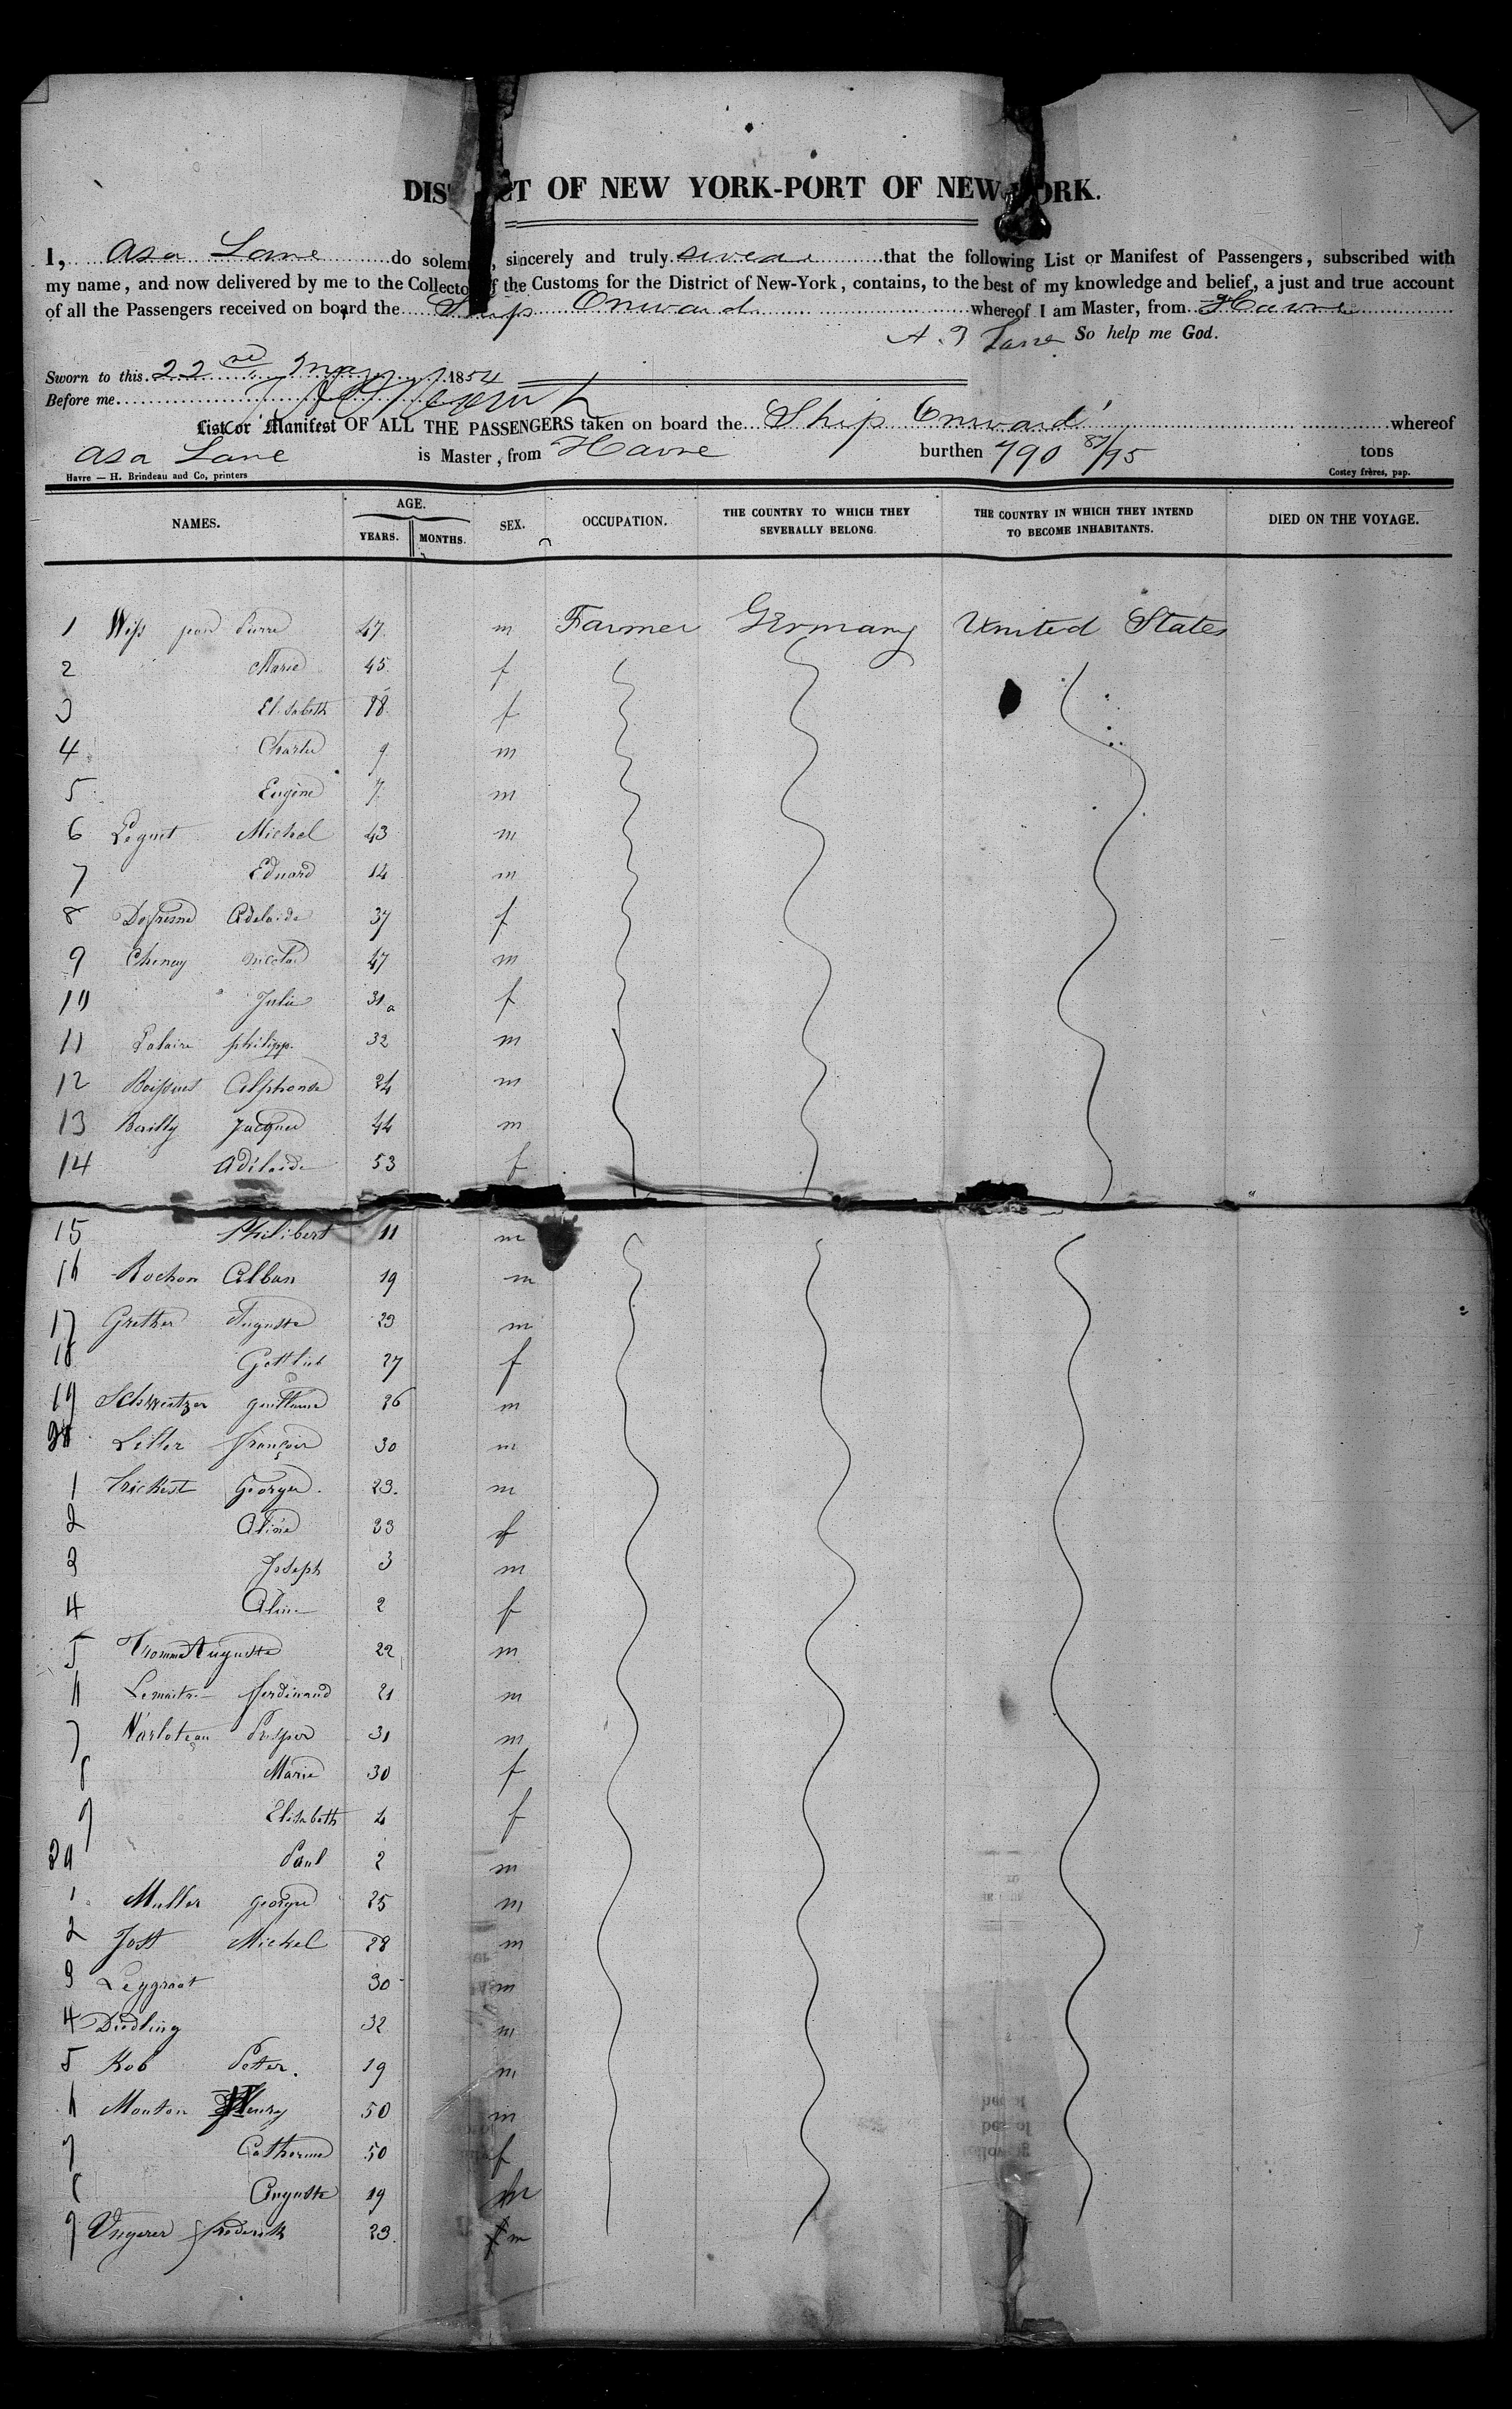 DISTRICT OF NEW YORK-PORT OF NEW-YORK.
I, Asa Lane do solemnly, sincerely and truly swear that the following List or Manifest of Passengers, subscribed with
my name, and now delivered by me to the Collector of the Customs for the District of New-York, contains, to the best of my knowledge and belief, a just and true account
of all the Passengers received on board the Ship Onward whereof I am Master, from Havre
A. T Lane So help me God.
Sworn to this 22nd May 1854
Before me
List or Manifest OF ALL THE PASSENGERS taken on board the Ship Onward whereof
Asa Lane is Master, from Havre burthen 790 87/95 tons
Havre — H. Brindeau and Co, printers Costey frères, pap.
NAMES. AGE. YEARS. MONTHS. SEX. OCCUPATION. THE COUNTRY TO WHICH THEY SEVERALLY BELONG. THE COUNTRY IN WHICH THEY INTEND TO BECOME INHABITANTS. DIED ON THE VOYAGE.
1 Wiss jean Pierre 47 m Farmer Germany United States
2 Marie 45 f
3 Elisabeth 18 f
4 Charles 9 m
5 Eugène 7 m
6 Leguet Michel 43 m
7 Eduard 14 m
8 Dofresne Adelaide 37 f
9 Chenay nicolas 47 m
10 Julie 31 f
11 Lalaire philipp. 32 m
12 Alphonse 24 m
13 Bailly Jacques 44 m
14 Adélaide 53 f
15 Philibert 11 m
16 Rochon Alban 19 m
17 Grether Auguste 23 m
18 Gottlieb 27 f
19 Schweitzer guillaume 26 m
20 Leller françois 30 m
1 Trickest Georges 23. m
2 Aline 23 f
3 Joseph 3 m
4 Aline 2 f
5 Tromme Auguste 22 m
6 Lemaitre ferdinand 21 m
7 Warloteau Prosper 31 m
8 Marie 30 f
9 Elisabeth 4 f
30 Paul 2 m
1 Muller georges 25 m
2 Jost Michel 28 m
3 Leygraat 30 m
4 Diedling 32 m
5 Kob Petter. 19 m
6 Mouton Henry 50 m
7 Catherine 50 f
8 Auguste 19 m
9 Ungerer frederick 23. m